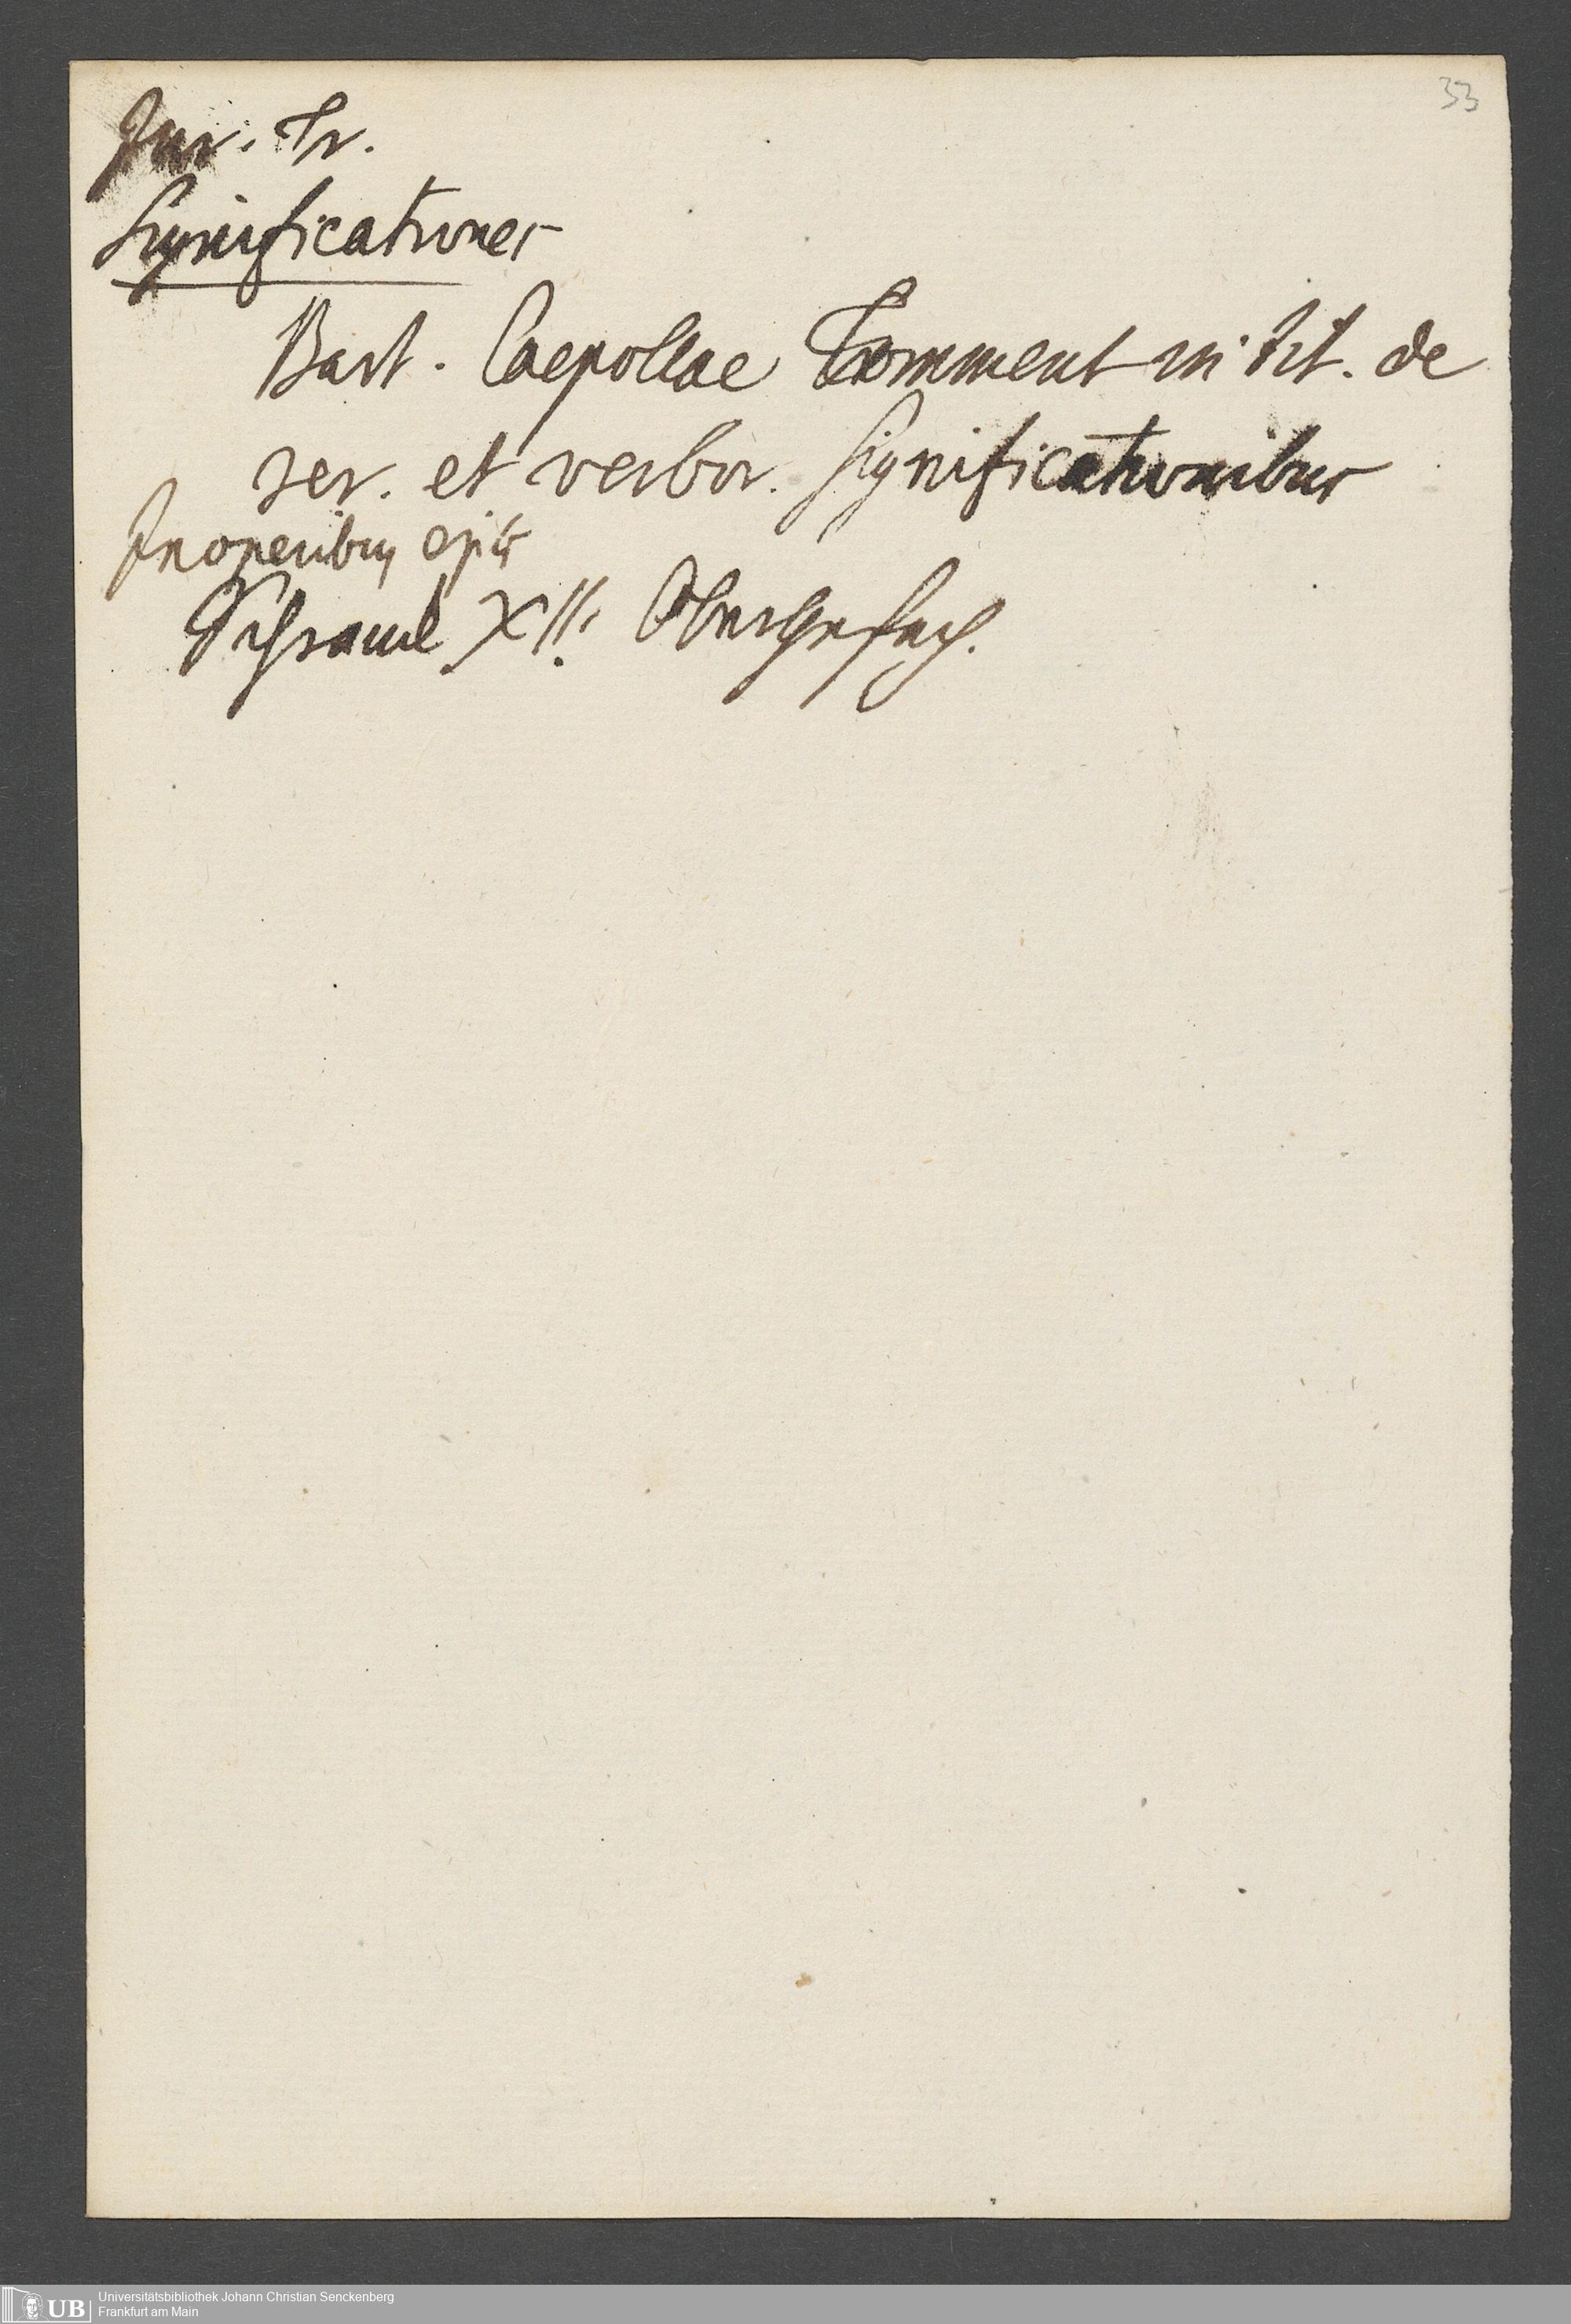 33
Jur. Tr.
Significationes
Bart. Caepollae Comment in tit. de
rer. et verbor. Significationibus
In operibus ejus
Schrank XII. Obersten fach.
Universitätsbibliothek Johann Christian Senckenberg
UB Frankfurt am Main